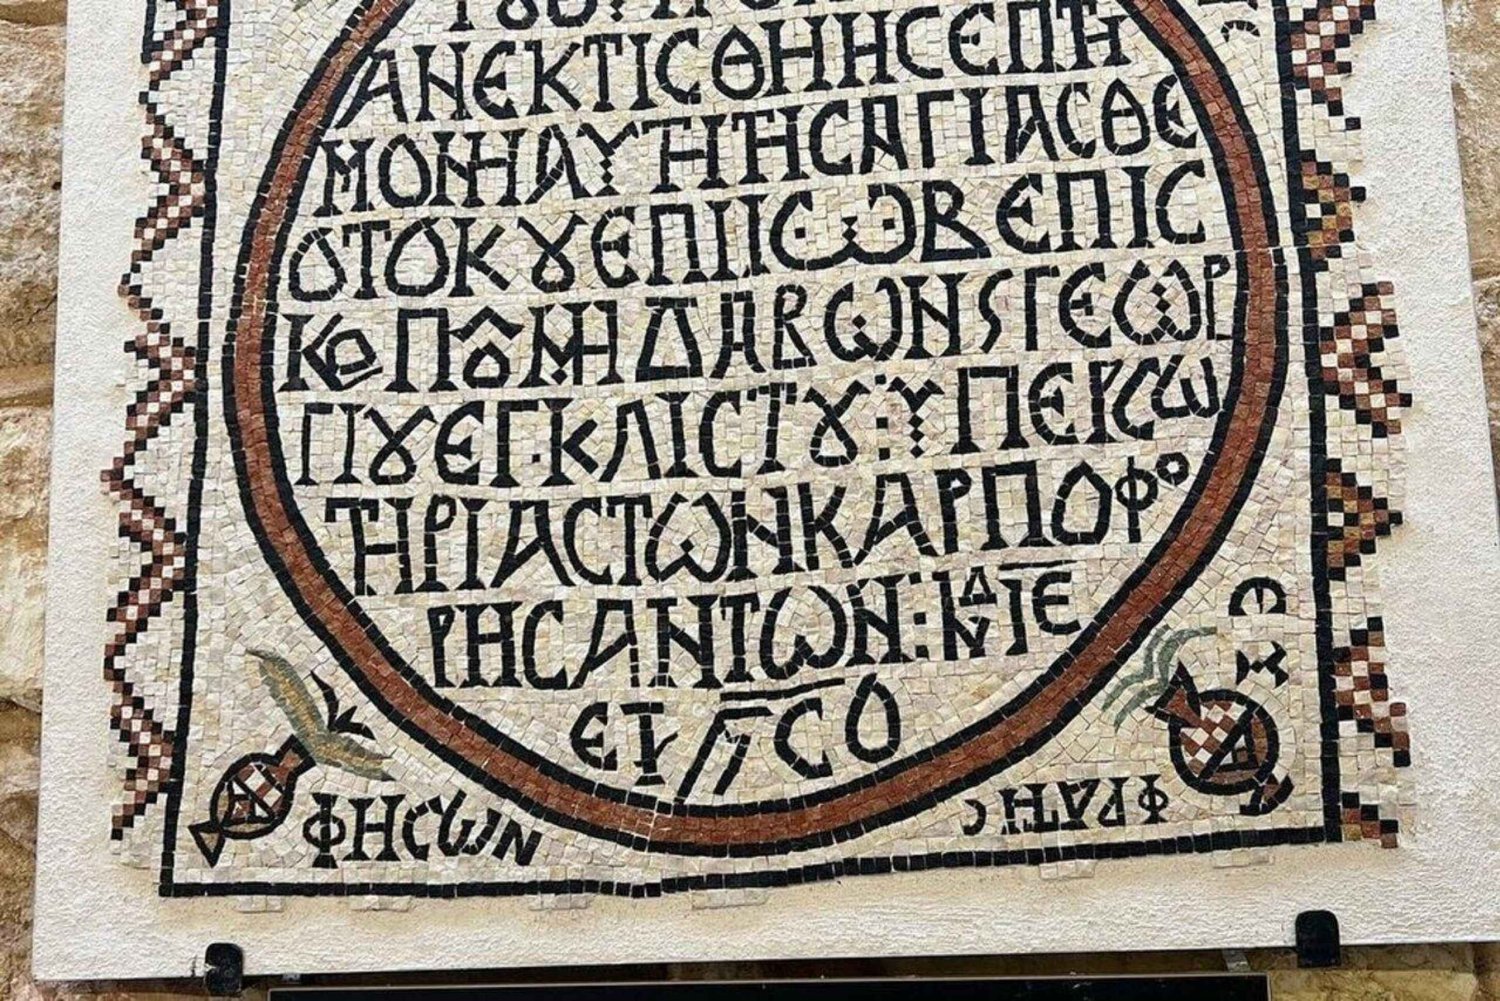 ΑΝΕΚΤΙCΘΗΗCΕΠΤΗ
ΜΟΝΗΑΥΤΗΤΗCΑΓΙΑCΘΕ
ΟΤΟΚȢΕΠΙΙCΩΒΕΠΙC
ΚȢΠȢΜΗΔΑΒΩΝSΓΕΩΡ
ΓΙȢΕΓΚΛΙCΤȢ:ΥΠΕΡCΩ
ΤΗΡΙΑCΤΩΝΚΑΡΠΟΦΟ
ΡΗCΑΝΤΩΝ:ΙΝΔΙΕ
ΕΤϚCΟ
ΦΗCΩΝ
ΦΡΑΤΗC